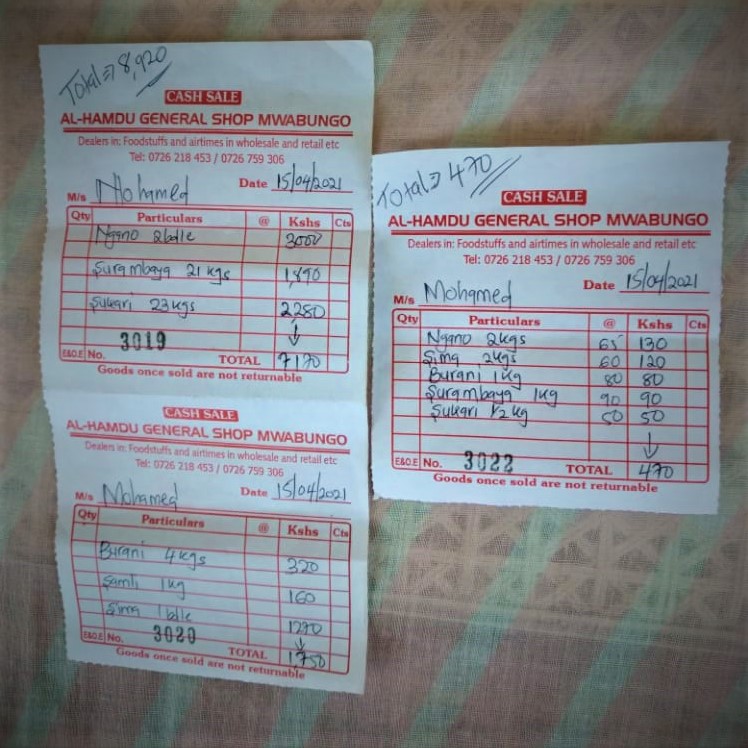 Total => 8,920
CASH SALE
AL-HAMDU GENERAL SHOP MWABUNGO
Dealers in: Foodstuffs and airtimes in wholesale and retail etc
Tel: 0726 218 453 / 0726 759 306
M/s Mohamed Date 15/04/2021
Qty Particulars @ Kshs Cts
Ngano 2bdle 3000
Surambaya 21 kgs 1,890
Sukari 23kgs 2280
E&O.E No. 3019 TOTAL 7170
Goods once sold are not returnable
CASH SALE
AL-HAMDU GENERAL SHOP MWABUNGO
Dealers in: Foodstuffs and airtimes in wholesale and retail etc
Tel: 0726 218 453 / 0726 759 306
M/s Mohamed Date 15/04/2021
Qty Particulars @ Kshs Cts
Burani 4kgs 320
Samli 1kg 160
Sima 1bdle 1270
E&O.E No. 3020 TOTAL 1,750
Goods once sold are not returnable
Total => 470
CASH SALE
AL-HAMDU GENERAL SHOP MWABUNGO
Dealers in: Foodstuffs and airtimes in wholesale and retail etc
Tel: 0726 218 453 / 0726 759 306
M/s Mohamed Date 15/04/2021
Qty Particulars @ Kshs Cts
Ngano 2kgs 65 130
Sima 2kgs 60 120
Burani 1kg 80 80
Surambaya 1kg 90 90
Sukari 1/2 kg 50 50
E&O.E No. 3022 TOTAL 470
Goods once sold are not returnable